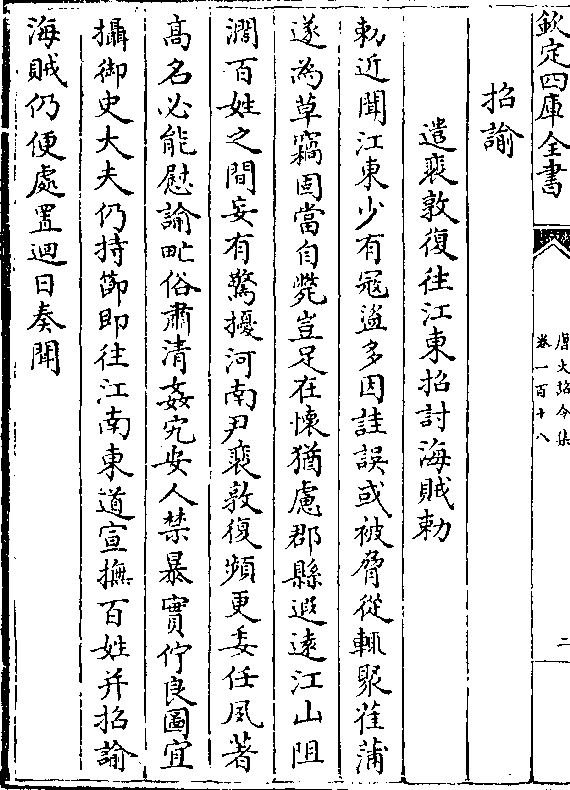 欽定四庫全書
唐大詔令集
卷一百十八
二
招諭
遣裴敦復往江東招討海賊勅
勅近聞江東少有寇盜多因詿誤或被脅從輒聚萑蒲
遂為草竊固當自斃豈足在懷猶慮郡縣遐遠江山阻
濶百姓之間妄有驚擾河南尹裴敦復頻更委任夙著
高名必能慰諭甿俗肅清姦宄安人禁暴實佇良圖宜
攝御史大夫仍持節即往江南東道宣撫百姓并招諭
海賊仍便處置迴日奏聞